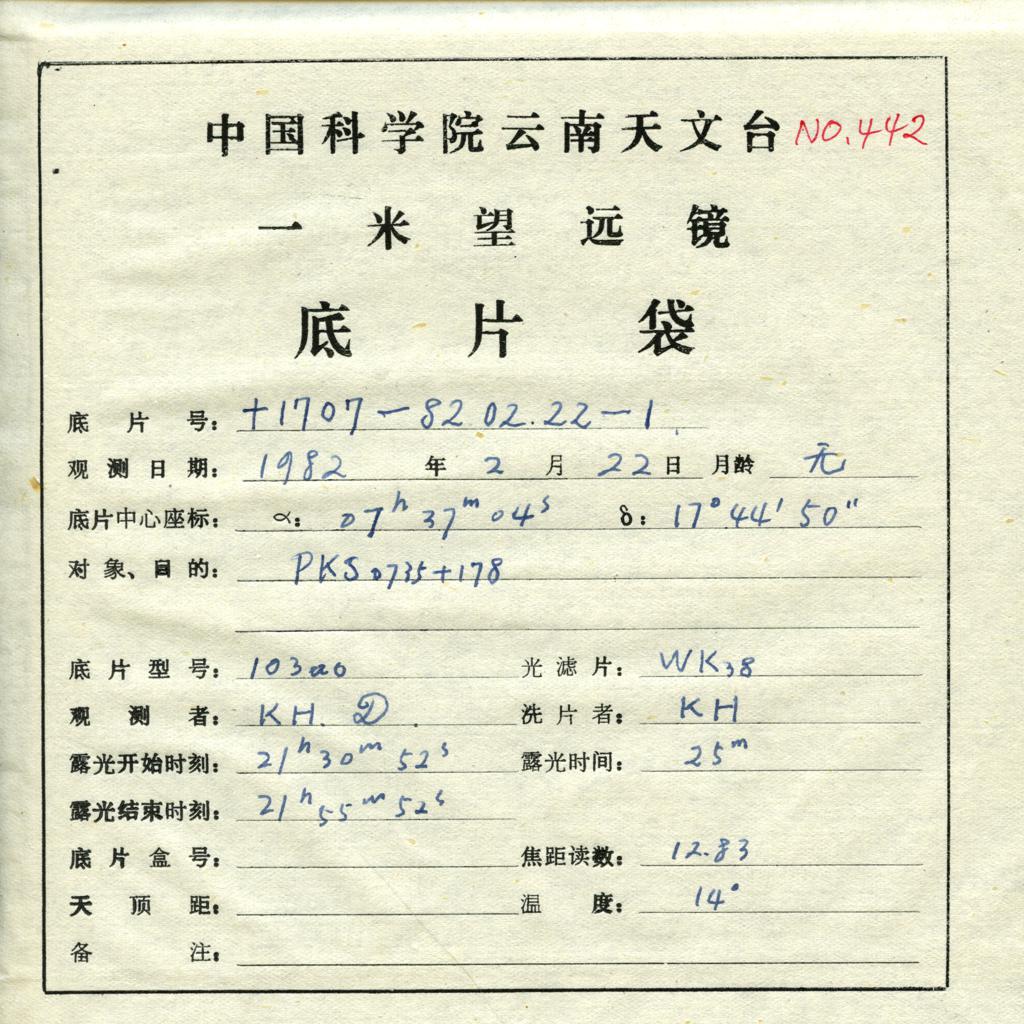 中国科学院云南天文台 NO.442
一米望远镜
底片袋
底片号: +1707-8202.22-1
观测日期: 1982 年 2 月 22 日 月龄 无
底片中心座标: α: 07h 37m 04s δ: 17°44′50″
对象、目的: PKS0735+178
底片型号: 103aO 光滤片: WK38
观测者: KH. D. 洗片者: KH
露光开始时刻: 21h 30m 52s 露光时间: 25m
露光结束时刻: 21h 55m 52s
底片盒号: 焦距读数: 12.83
天顶距: 温度: 14°
备注: